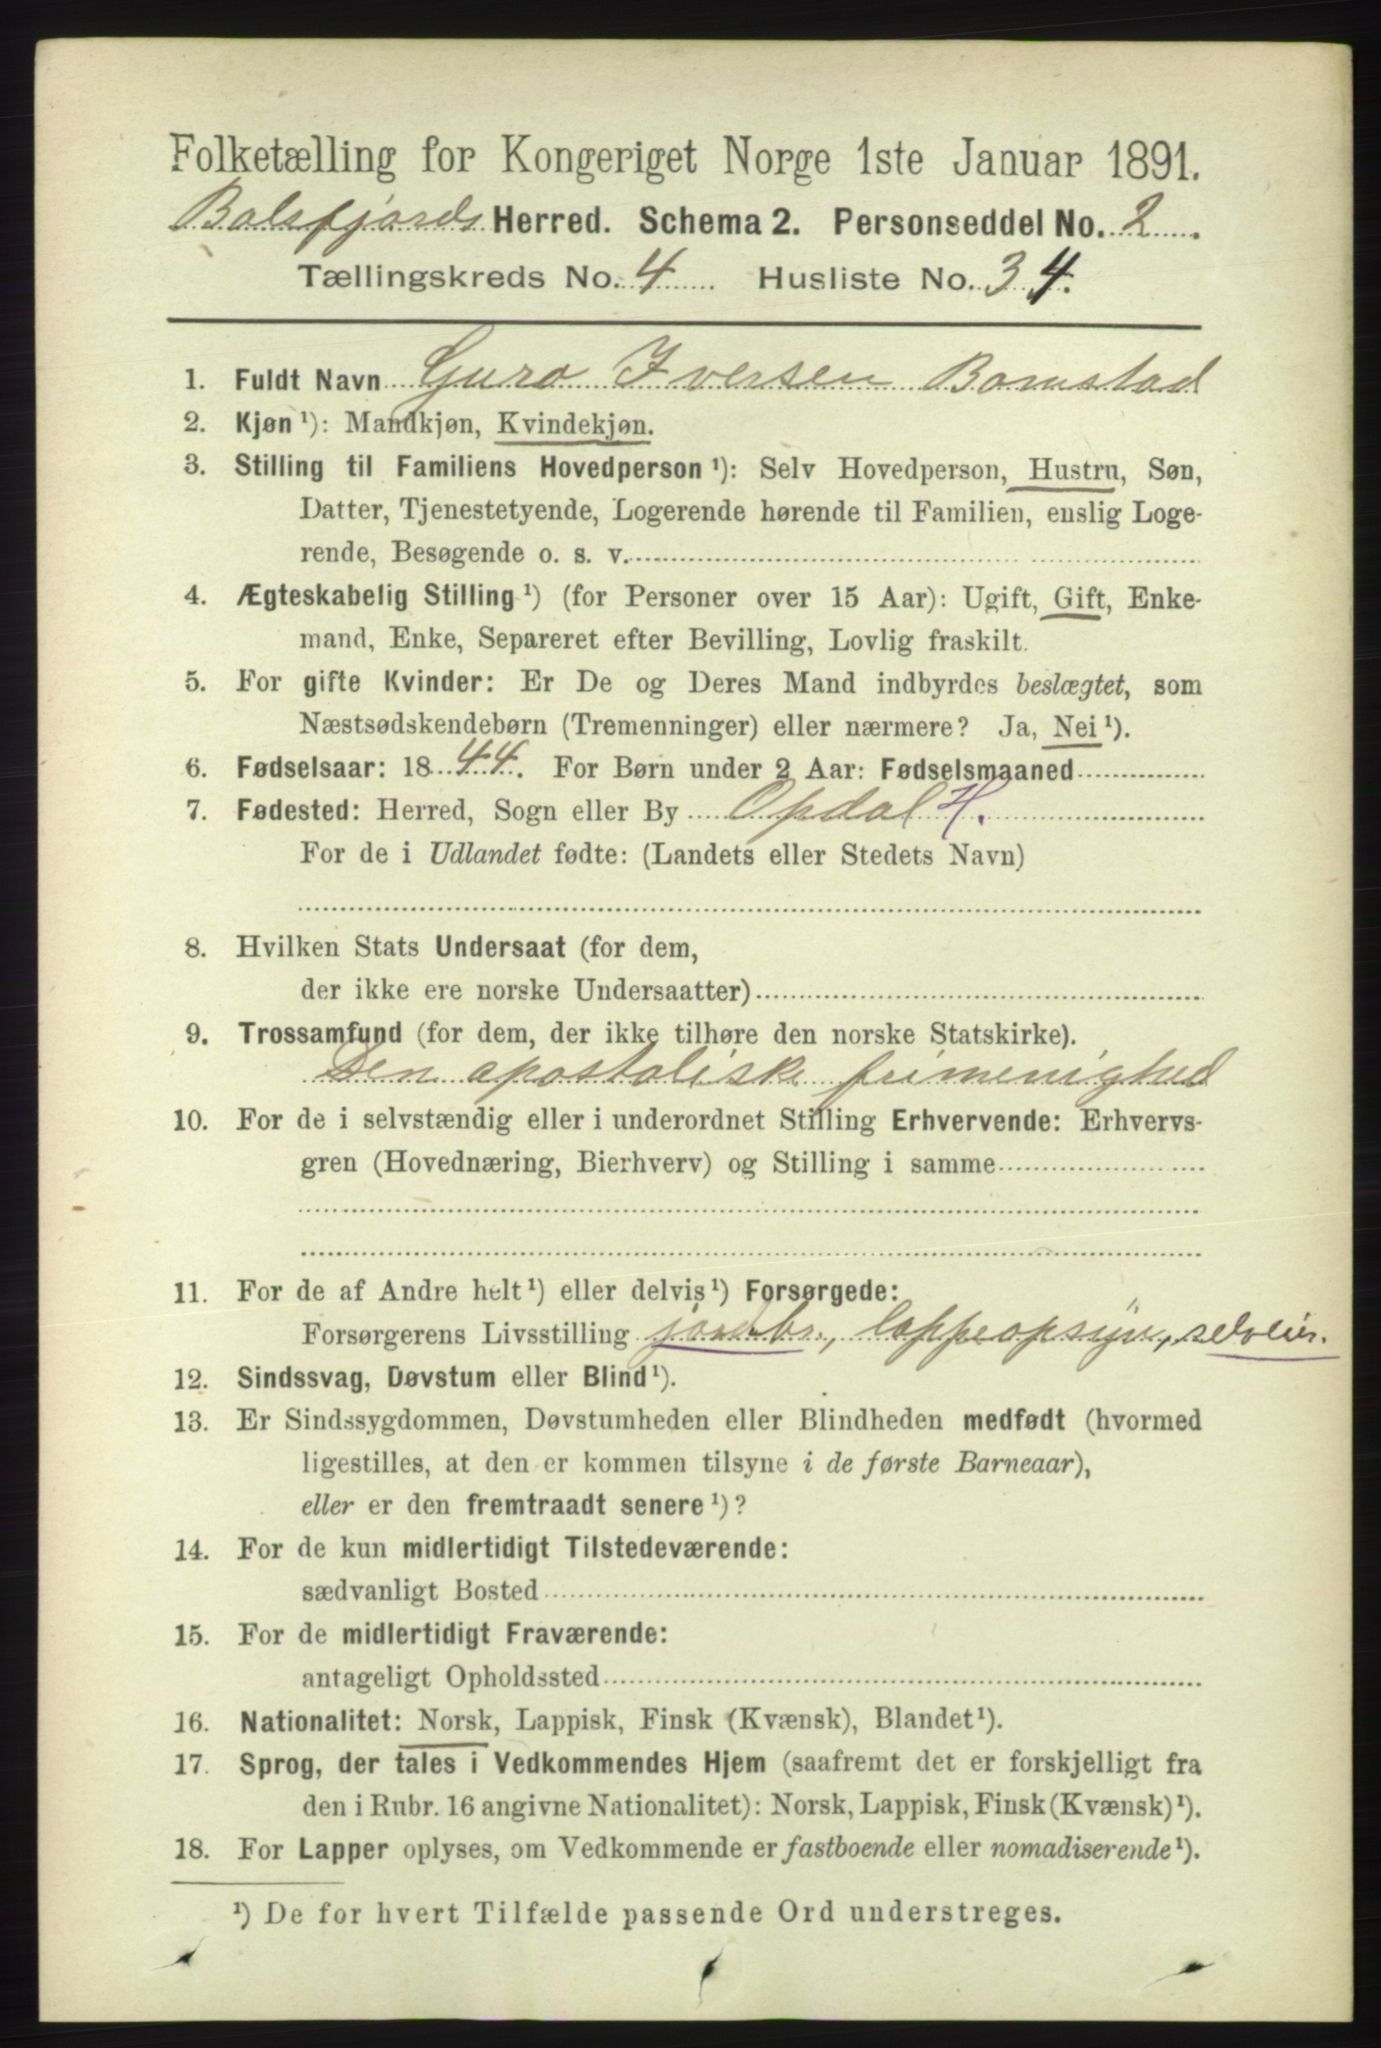 Folketælling for Kongeriget Norge 1ste Januar 1891.
Balsfjords Herred. Schema 2. Personseddel No. 2
Tællingskreds No. 4 Husliste No. 34.
1. Fuldt Navn Guro Iversen Bomstad
2. Kjøn ¹): Mandkjøn, Kvindekjøn.
3. Stilling til Familiens Hovedperson ¹): Selv Hovedperson, Hustru, Søn,
Datter, Tjenestetyende, Logerende hørende til Familien, enslig Loge-
rende, Besøgende o. s. v.
4. Ægteskabelig Stilling ¹) (for Personer over 15 Aar): Ugift, Gift, Enke-
mand, Enke, Separeret efter Bevilling, Lovlig fraskilt.
5. For gifte Kvinder: Er De og Deres Mand indbyrdes beslægtet, som
Næstsødskendebørn (Tremenninger) eller nærmere? Ja, Nei ¹).
6. Fødselsaar: 1844. For Børn under 2 Aar: Fødselsmaaned
7. Fødested: Herred, Sogn eller By Opdal H.
For de i Udlandet fødte: (Landets eller Stedets Navn)
8. Hvilken Stats Undersaat (for dem,
der ikke ere norske Undersaatter)
9. Trossamfund (for dem, der ikke tilhøre den norske Statskirke).
Den apostoliske frimenighed
10. For de i selvstændig eller i underordnet Stilling Erhvervende: Erhvervs-
gren (Hovednæring, Bierhverv) og Stilling i samme
11. For de af Andre helt ¹) eller delvis ¹) Forsørgede:
Forsørgerens Livsstilling jordbr., lappeopsyn, selveier.
12. Sindssvag, Døvstum eller Blind ¹).
13. Er Sindssygdommen, Døvstumheden eller Blindheden medfødt (hvormed
ligestilles, at den er kommen tilsyne i de første Barneaar),
eller er den fremtraadt senere ¹)?
14. For de kun midlertidigt Tilstedeværende:
sædvanligt Bosted
15. For de midlertidigt Fraværende:
antageligt Opholdssted
16. Nationalitet: Norsk, Lappisk, Finsk (Kvænsk), Blandet ¹).
17. Sprog, der tales i Vedkommendes Hjem (saafremt det er forskjelligt fra
den i Rubr. 16 angivne Nationalitet): Norsk, Lappisk, Finsk (Kvænsk) ¹).
18. For Lapper oplyses, om Vedkommende er fastboende eller nomadiserende ¹).
¹) De for hvert Tilfælde passende Ord understreges.